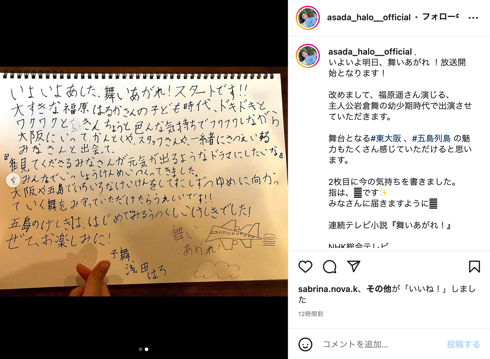 いよいよあした、舞いあがれ!スタートです!!
大すきな福原はるかさんの子ども時代、ドキドキと
ワクワクときんちょうと色んな気持ちでフワフワしながら
大阪にいってかんとくや、スタッフさんや、一緒におしばいする
みなさんと出会って、
『見てくださるみなさんが元気が出るようなドラマにしたいな』
みんなでいっしょうけんめいつくってきました。
大阪や五島でいろいろなけいけんをしてすこしずつゆめに向かっ
ていく舞をみていただけたらうれしいです!!
五島のけしきは、はじめてみるうつくしいけしきでした!
ぜひ、お楽しみに!
舞い
あがれ
子舞
浅田はろ
asada_halo__official • フォロー中
asada_halo__official
いよいよ明日、舞いあがれ!放送開
始となります!
改めまして、福原遥さん演じる、
主人公岩倉舞の幼少期時代で出演させ
ていただきます。
舞台となる#東大阪 、#五島列島 の魅
力もたくさん感じていただけると思い
ます。
2枚目に今の気持ちを書きました。
指は、です✨
みなさんに届きますように
連続テレビ小説『舞いあがれ!』
NHK総合テレビ
sabrina.nova.k、その他が「いいね!」しまし
た
12時間前
コメントを追加... 投稿する